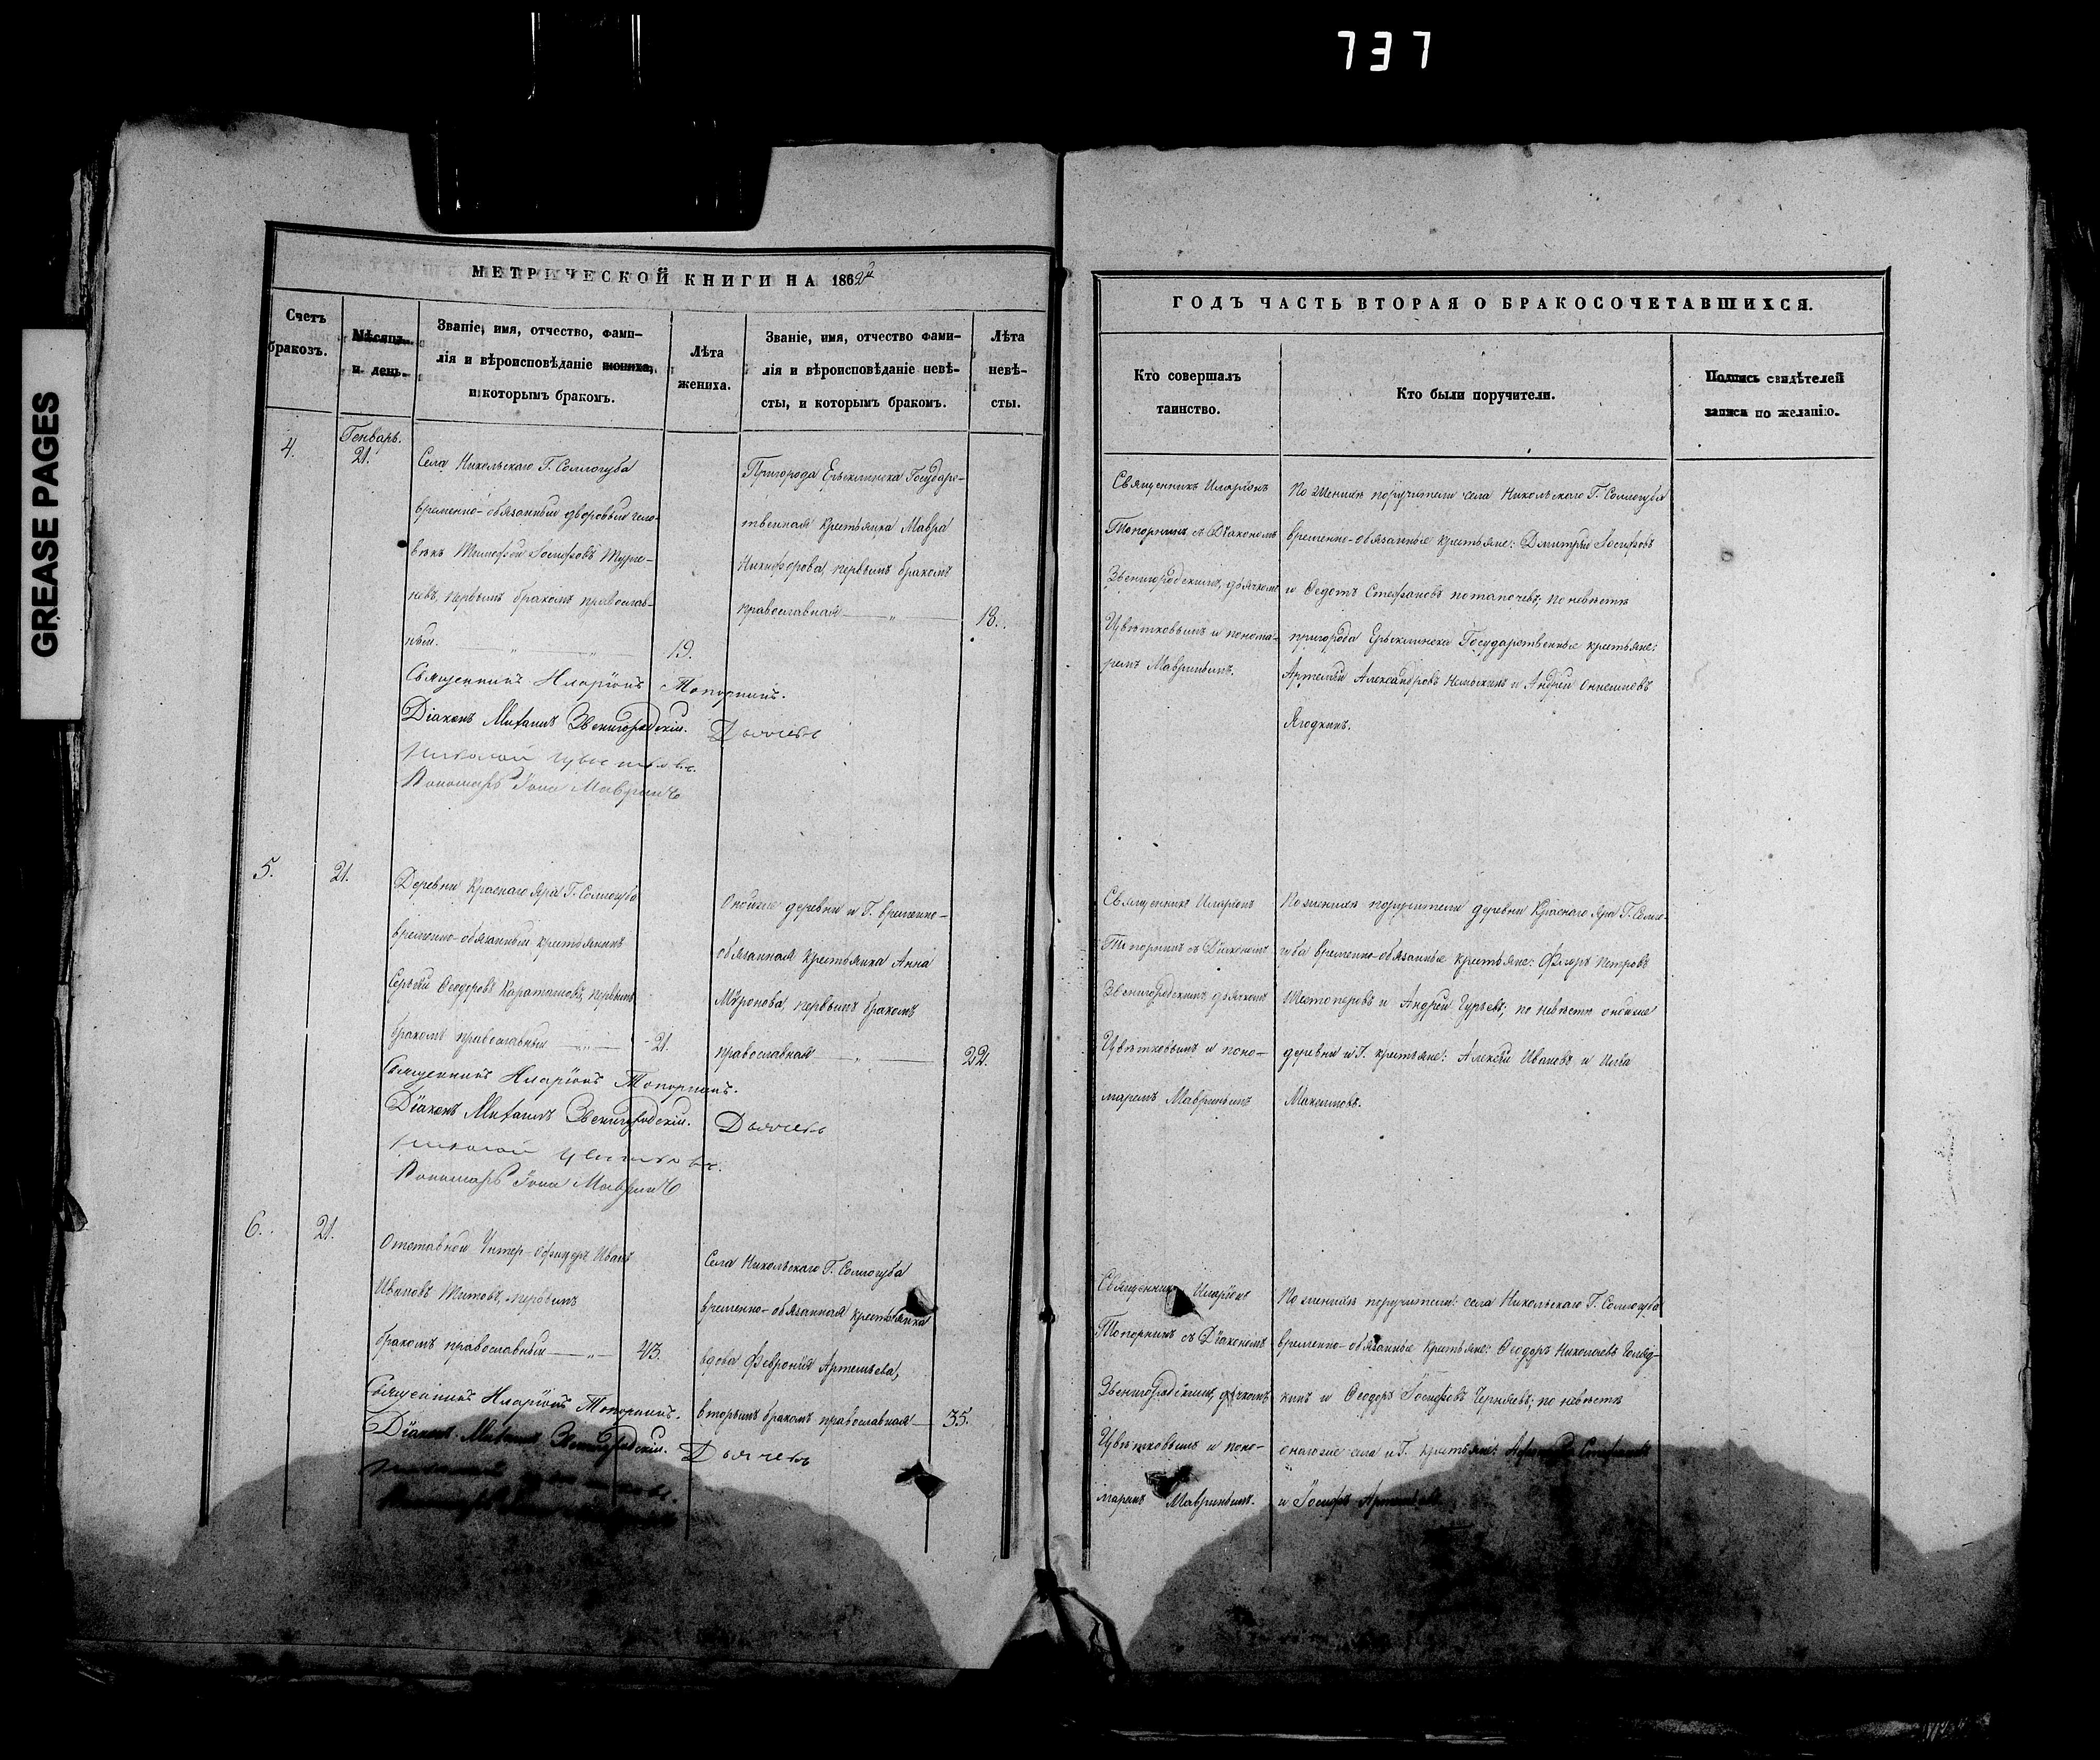 737
GREASE PAGES
МЕТРИЧЕСКОЙ КНИГИ НА 1862й
Счетъ
бракозъ.
Мѣсяцъ
и день.
Званіе, имя, отчество, фами-
лія и вѣроисповѣданіе жениха,
и которымъ бракомъ.
Лѣта
жениха.
Званіе, имя, отчество фами-
лія и вѣроисповѣданіе невѣ-
сты, и которымъ бракомъ.
Лѣта
невѣ-
сты.
ГОДЪ ЧАСТЬ ВТОРАЯ О БРАКОСОЧЕТАВШИХСЯ.
Кто совершалъ
таинство.
Кто были поручители.
Подпись свидѣтелей
записи по желанію.
4.
Генварь.
21.
Села Никольскаго Г. Соллогуба
временно-обязанный дворовый чело-
вѣкъ Тимофей Іосифовъ Турге-
невъ, первымъ бракомъ православ-
ный.
19.
Пригорода Ерыклинска Государс-
твенная крестьянка Мавра
Никифорова, первымъ бракомъ
православная
18.
Священникъ Иларіонъ
Топорнинъ съ Діакономъ
Звенигородскимъ, дьячкомъ
Цвѣтковымъ и понома-
ремъ Мавринымъ.
По женихѣ поручители села Никольскаго Г. Соллогуба
временно-обязанные крестьяне: Дмитрій Іосифовъ
и Ѳедотъ Стефановъ Потапочевъ; по невѣстѣ
пригорода Ерыклинска Государственные крестьяне:
Артемій Александровъ и Андрей Онисимовъ
Ягодкинъ.
Священникъ Иларіонъ Топорнинъ.
Діаконъ Звенигородскій. Дьячекъ
Николай Цвѣтковъ.
Пономарь Іона Мавринъ
5.
21.
Деревни Краснаго Яра Г. Соллогуба
временно-обязанный крестьянинъ
Сергѣй Ѳеодоровъ Караташовъ, первымъ
бракомъ православный
21.
Оной же деревни и Г. временно-
обязанная крестьянка Анна
Мѵронова, первымъ бракомъ
православная
22.
Священникъ Иларіонъ
Топорнинъ съ Діакономъ
Звенигородскимъ дьячкомъ
Цвѣтковымъ и поно-
маремъ Мавринымъ
По женихѣ поручители деревни Краснаго Яра Г. Солло-
губа временно-обязанные крестьяне: Ѳеодоръ Петровъ
Шестоперовъ и Андрей Гурьевъ; по невѣстѣ оной же
деревни и Г. крестьяне: Алексѣй Ивановъ и Илья
Максимовъ.
Священникъ Иларіонъ Топорнинъ.
Діаконъ Звенигородскій. Дьячекъ
Николай Цвѣтковъ.
Пономарь Іона Мавринъ
6.
21.
Отставной Унтер-Офицеръ Иванъ
Ивановъ Титовъ, первымъ
бракомъ православный
43.
Села Никольскаго Г. Соллогуба
временно-обязанная крестьянка
вдова Феѵронія Артемьева,
вторымъ бракомъ православная
35.
Священникъ Иларіонъ
Топорнинъ съ Діакономъ
Звенигородскимъ, дьячкомъ
Цвѣтковымъ и поно-
маремъ Мавринымъ.
По женихѣ поручители: села Никольскаго Г. Соллогуба
временно-обязанные крестьяне: Ѳеодоръ Николаевъ Голяд-
кинъ и Ѳеодоръ Іосифовъ Черняевъ; по невѣстѣ
онаго же села и Г. крестьяне:
и Іосифъ
Священникъ Иларіонъ Топорнинъ.
Діаконъ Звенигородскій. Дьячекъ